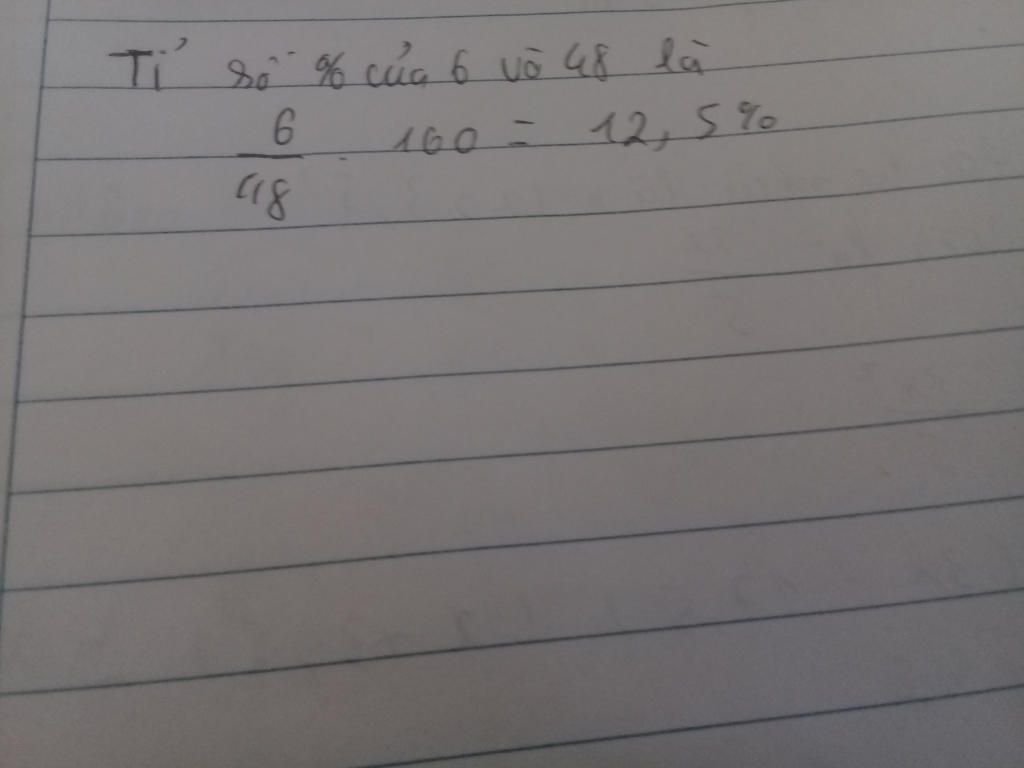 Tỉ số % của 6 và 48 là
6/48 . 100 = 12,5%